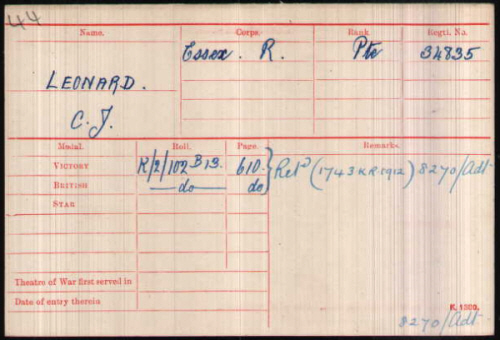 44
Name. Corps. Rank. Regtl. No.
LEONARD. Essex. R. Pte 34835
C. J.
Medal. Roll. Page. Remarks.
VICTORY R/2/102 B 13. 610. Retd (1743 KR 1912) 8270/Adt.
BRITISH do do
STAR
Theatre of War first served in
Date of entry therein
K. 1380.
8270/Adt.